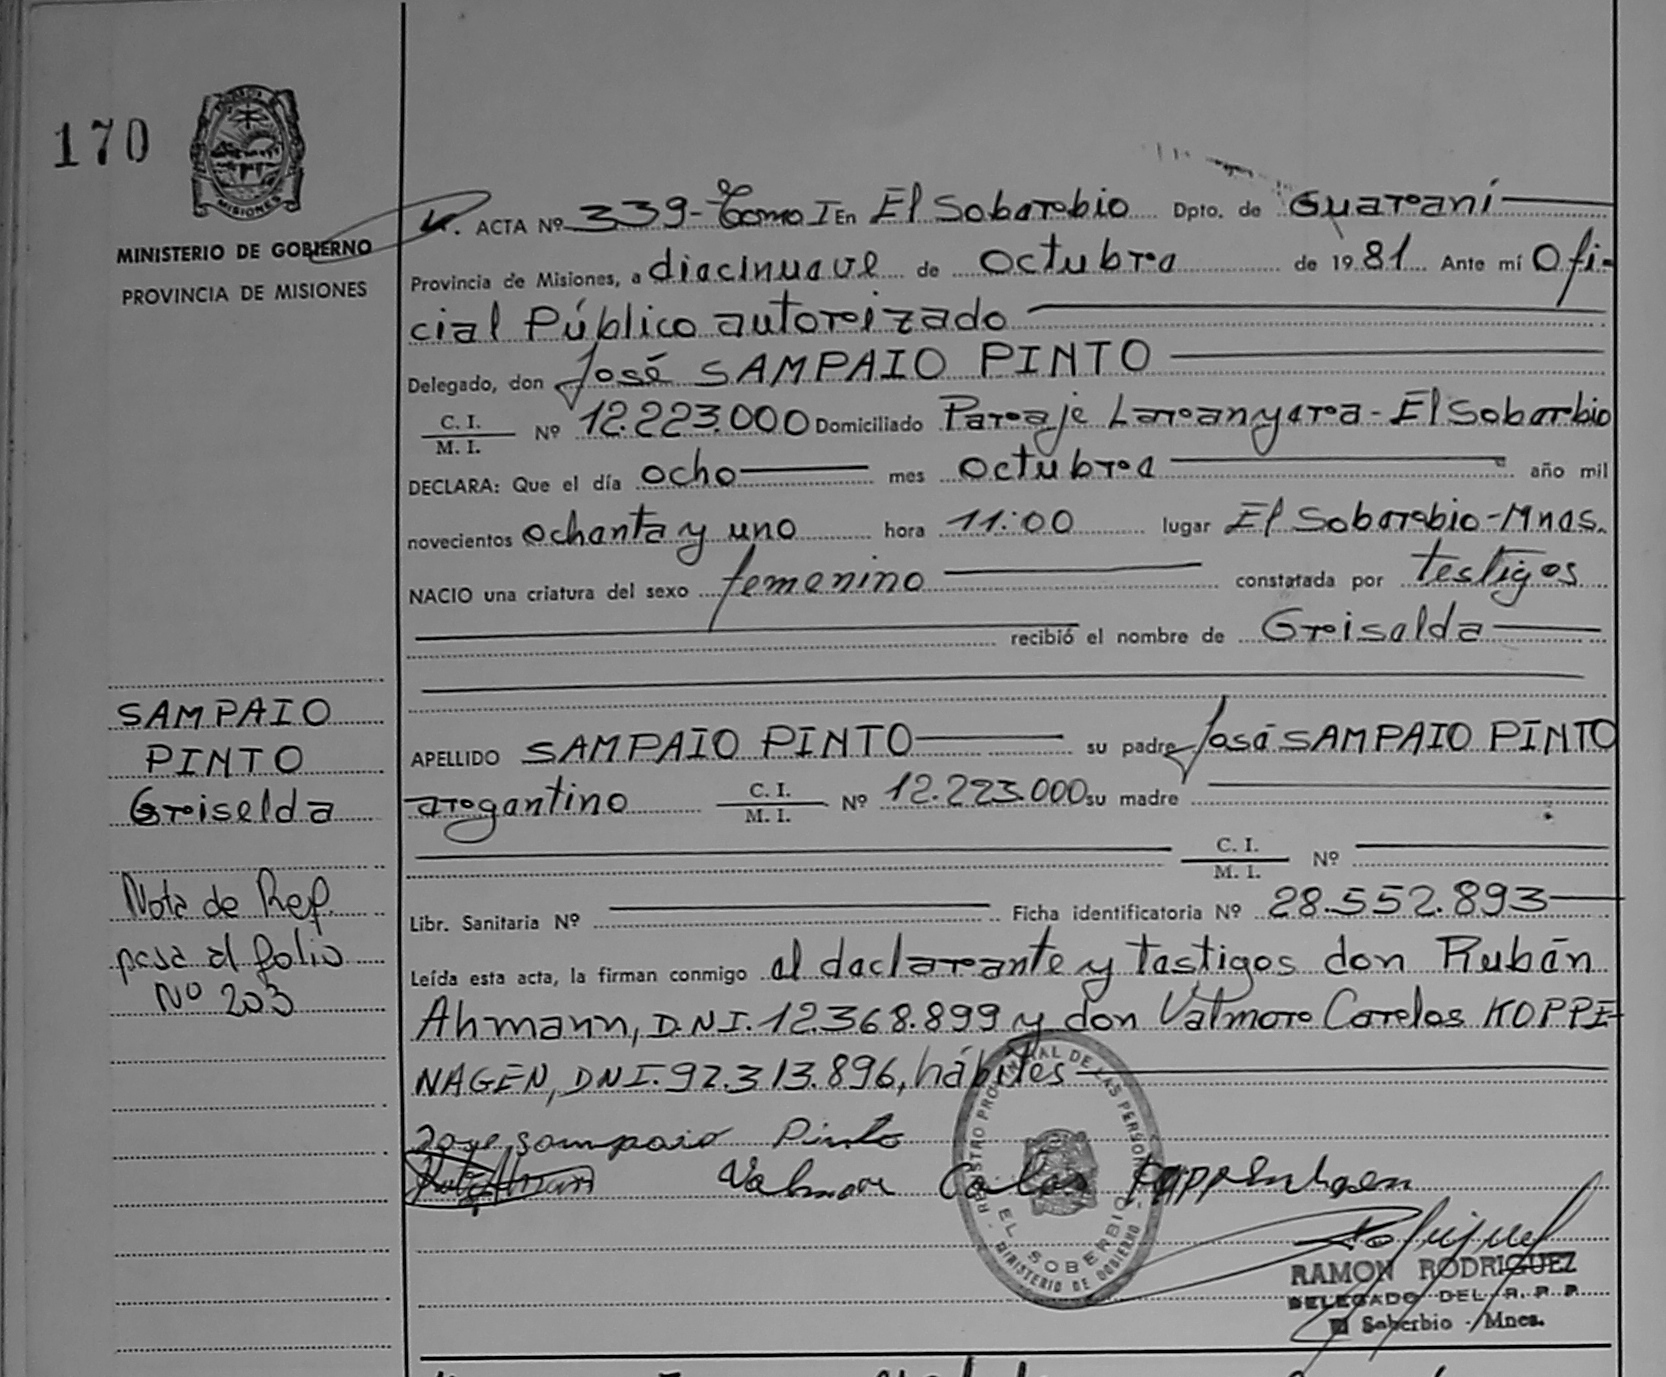 170
MISIONES
MINISTERIO DE GOBIERNO
PROVINCIA DE MISIONES
ACTA Nº 339- Tomo I En El Soberbio Dpto. de Guaraní
Provincia de Misiones, a diecinueve de Octubre de 1981 Ante mí Ofi-
cial Público autorizado
Delegado, don José SAMPAIO PINTO
C. I.
M. I. Nº 12.223.000 Domiciliado Paraje Laranyera - El Soberbio
DECLARA: Que el día ocho mes octubre año mil
novecientos ochenta y uno hora 11:00 lugar El Soberbio-Mnes.
NACIO una criatura del sexo femenino constatada por testigos
recibió el nombre de Griselda
APELLIDO SAMPAIO PINTO su padre José SAMPAIO PINTO
argentino C. I.
M. I. Nº 12.223.000 su madre
C. I.
M. I. Nº
Libr. Sanitaria Nº Ficha identificatoria Nº 28.552.893
Leída esta acta, la firman conmigo el declarante y testigos don Rubén
Ahmann, D.N.I. 12.368.899 y don Valmor Carlos KOPPE
NAGEN, DNI. 92.313.896, hábiles
Jose sampaio Pinto
Valmor Carlos Koppenhagen
REGISTRO PROVINCIAL DE LAS PERSONAS
EL SOBERBIO
MINISTERIO DE GOBIERNO
RAMON RODRIGUEZ
DELEGADO DEL R. P. P.
El Soberbio - Mnes.
SAMPAIO
PINTO
Griselda
Nota de Ref.
pasa al folio
Nº 203